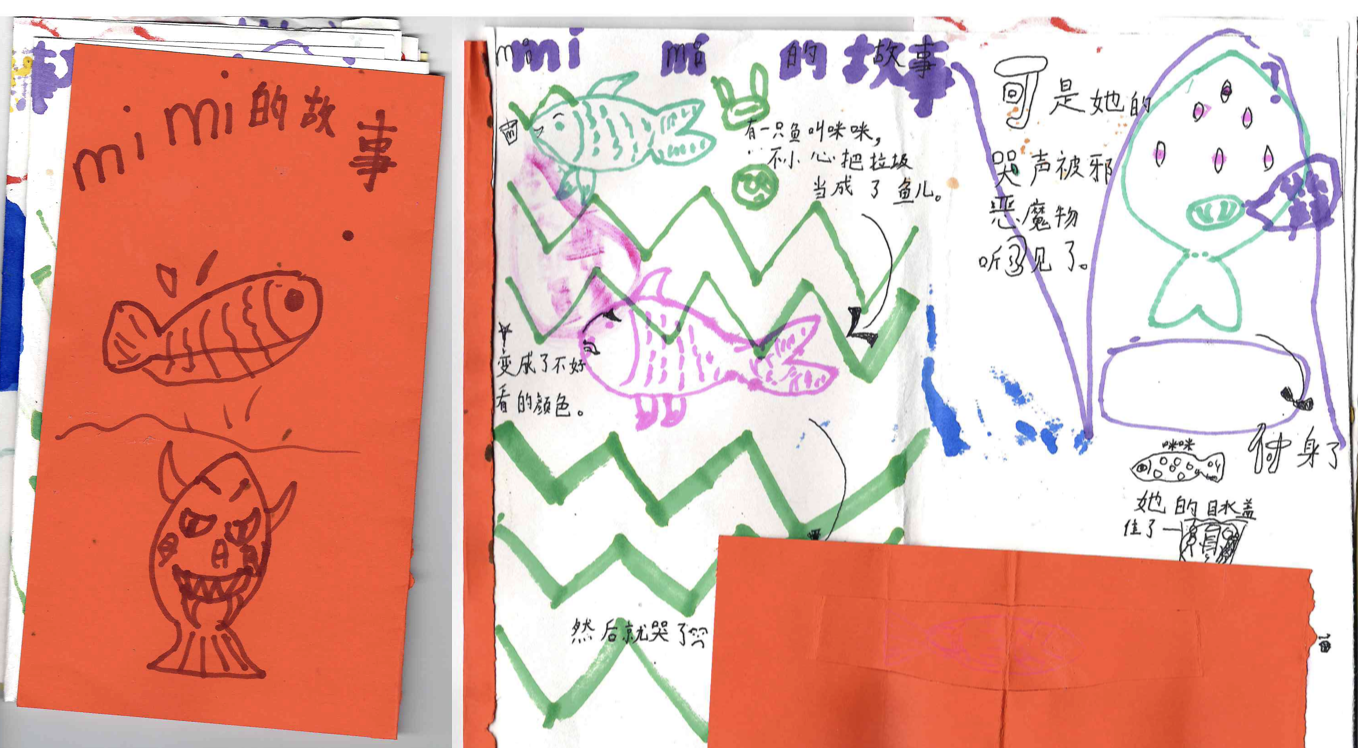 mimi的故
事
mimi的故事
有一只鱼叫咪咪,
不小心把垃圾
当成了鱼儿。
变成了不好
看的颜色。
然后就哭了
可是她的
哭声被邪
恶魔物
听见了。
咪咪
她的
住了